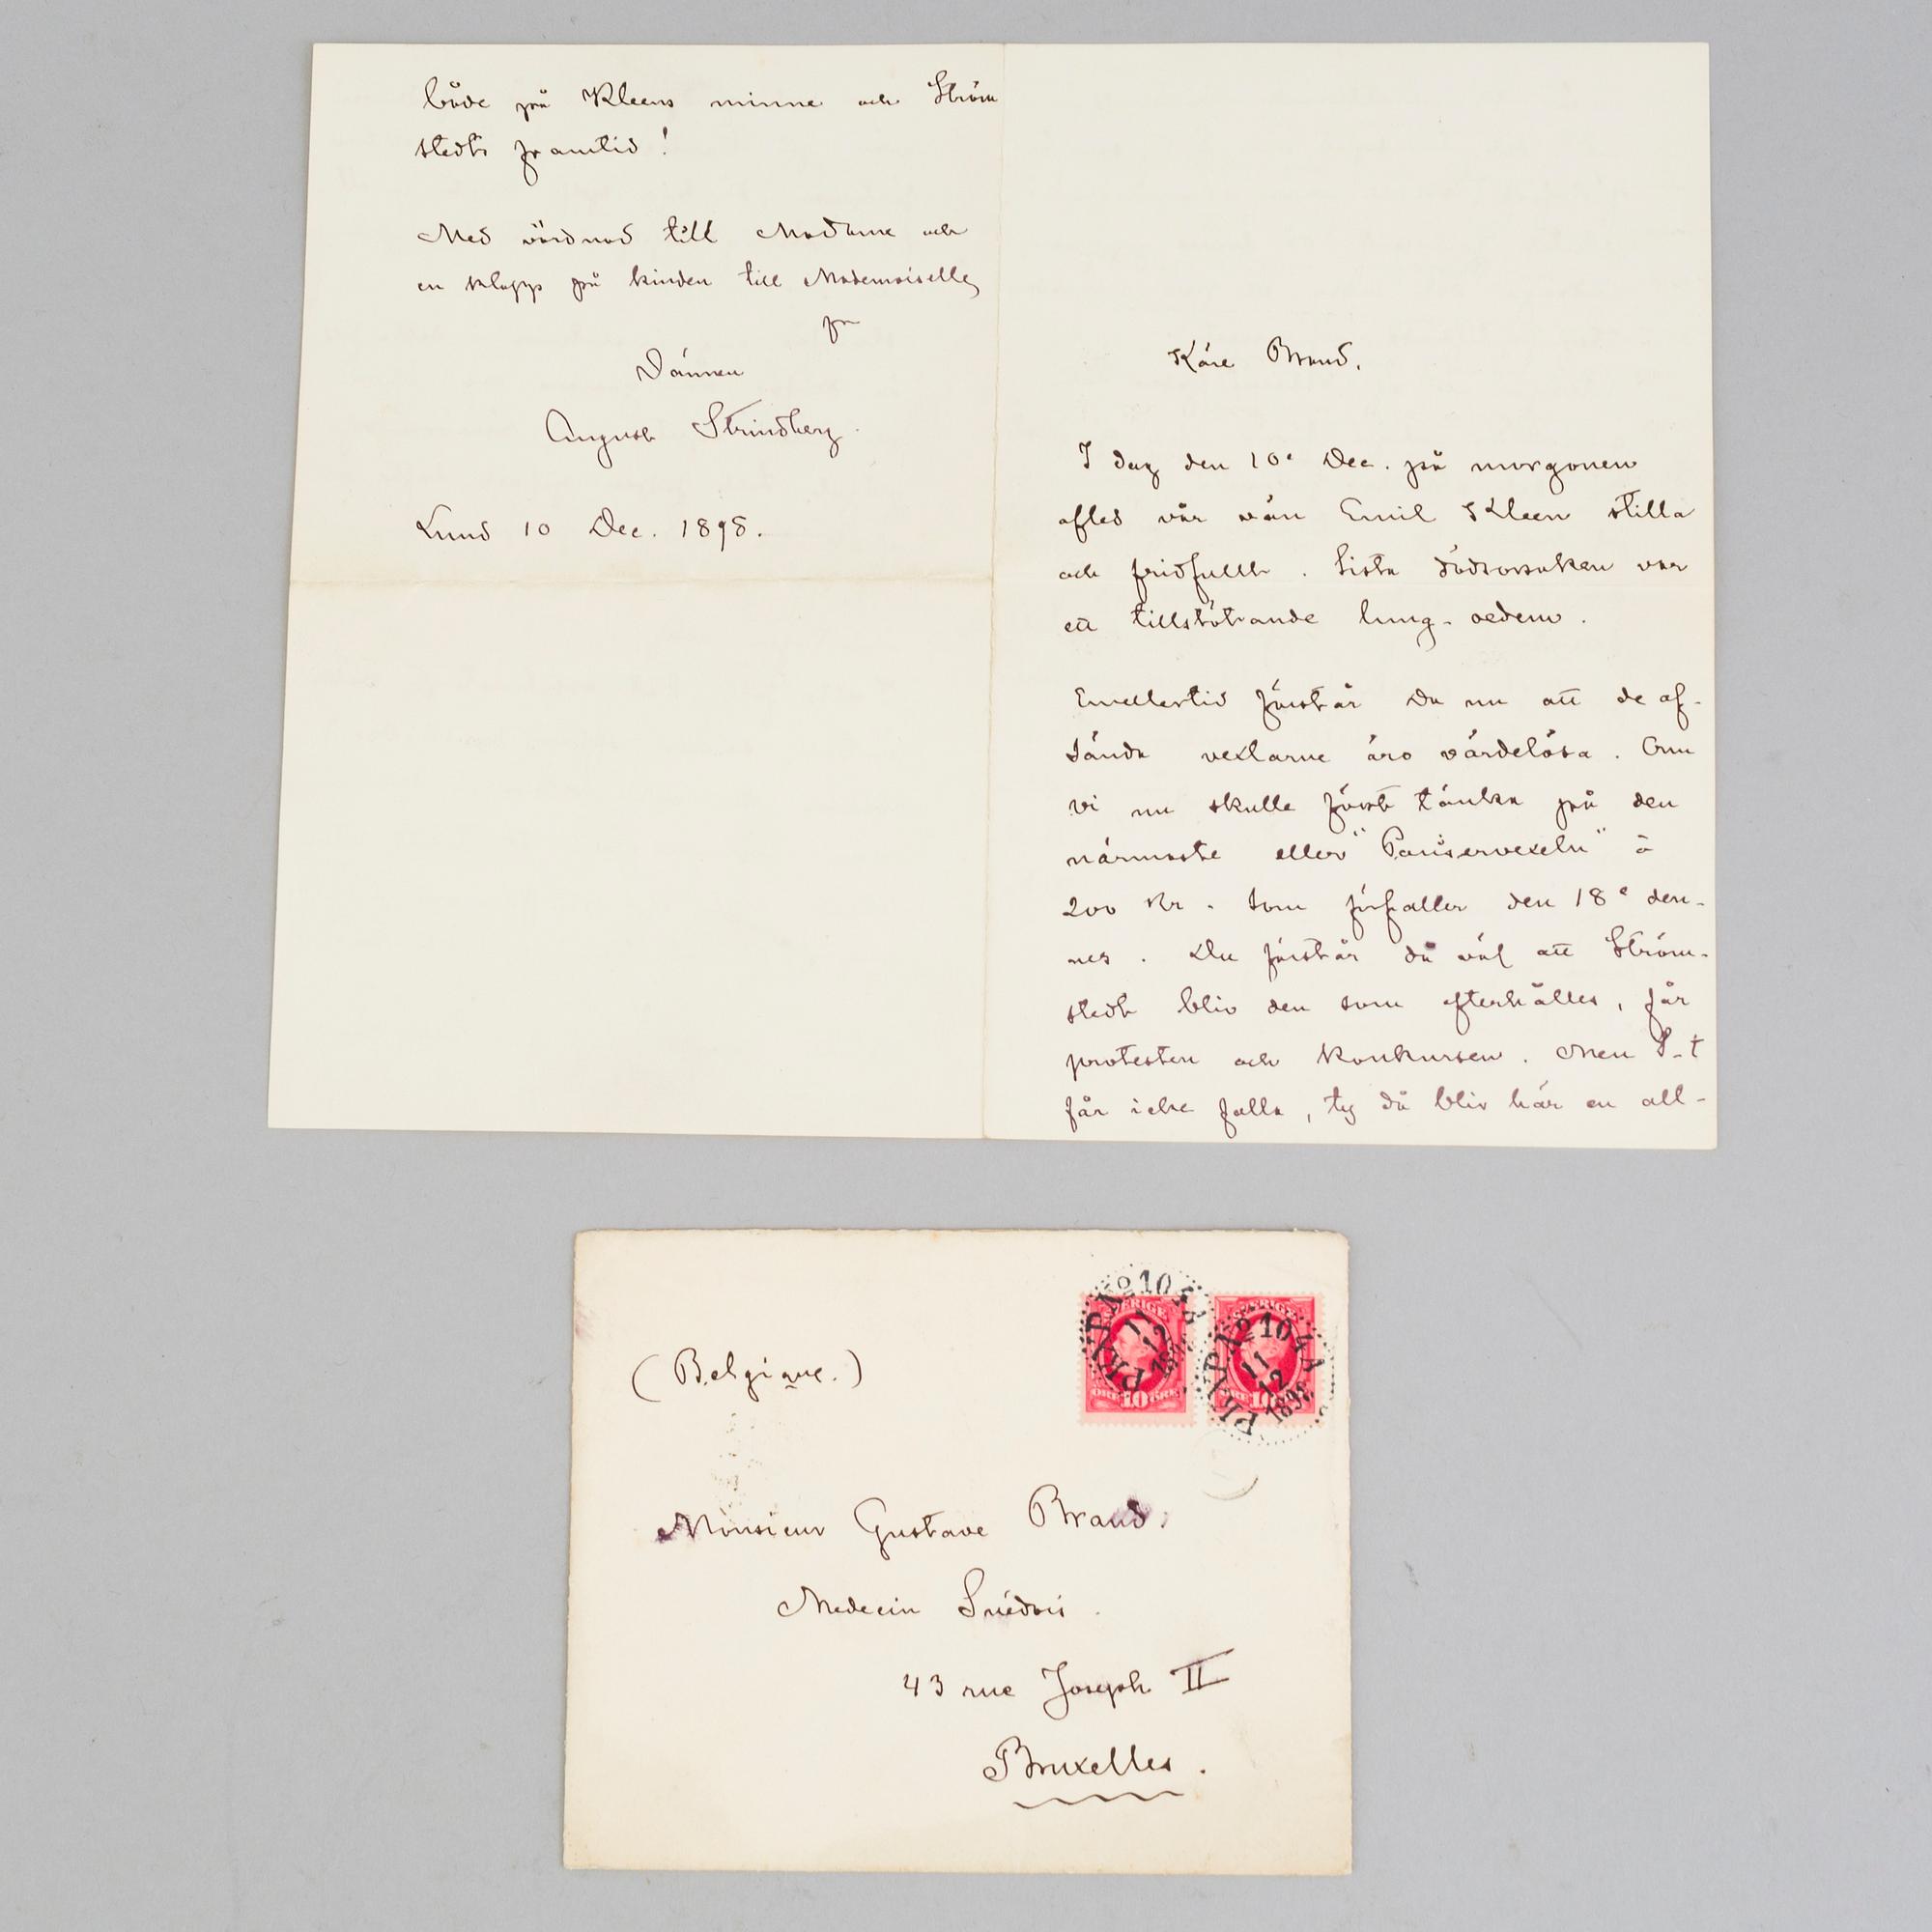 både på Kleens minne och Ström
stedts framtid!
Med vördnad till Madame och
en klapp på kinden till Mademoiselle
från
Vännen
August Strindberg.
Lund 10 Dec. 1898.
Käre Brand,
I dag den 10e Dec. på morgonen
afled vår vän Emil Kleen stilla
och fridfullt. Sista dödsorsaken var
ett tillstötande lung-oedem.
Emellertid förstår Du nu att de af-
sända vexlarne äro värdelösa. Om
vi nu skulle först tänka på den
närmaste eller "Pariservexeln" à
200 Kr. som förfaller den 18e den-
nes. Du förstår då väl att Ström-
stedt blir den som efterhålles, får
protesten och konkursen. Men S-t
får icke falla, ty då blir här en all-
(Belgique.)
PKXP No 10 4A
11
12
SVERIGE
ÖRE 10 ÖRE
PKXP No 10 4A
11
12
1898
Monsieur Gustave Brand.
Medecin Suédois.
43 rue Joseph II
Bruxelles.